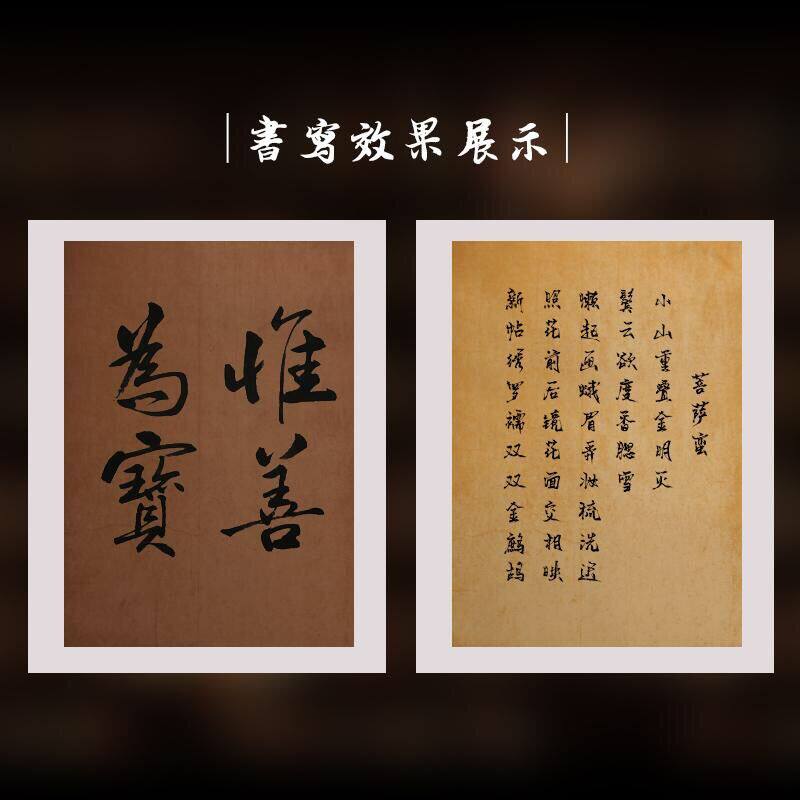 書寫效果展示
惟善
為寶
菩萨蛮
小山重叠金明灭
鬓云欲度香腮雪
懒起画蛾眉弄妆梳洗迟
照花前后镜花面交相映
新帖绣罗襦双双金鹧鸪